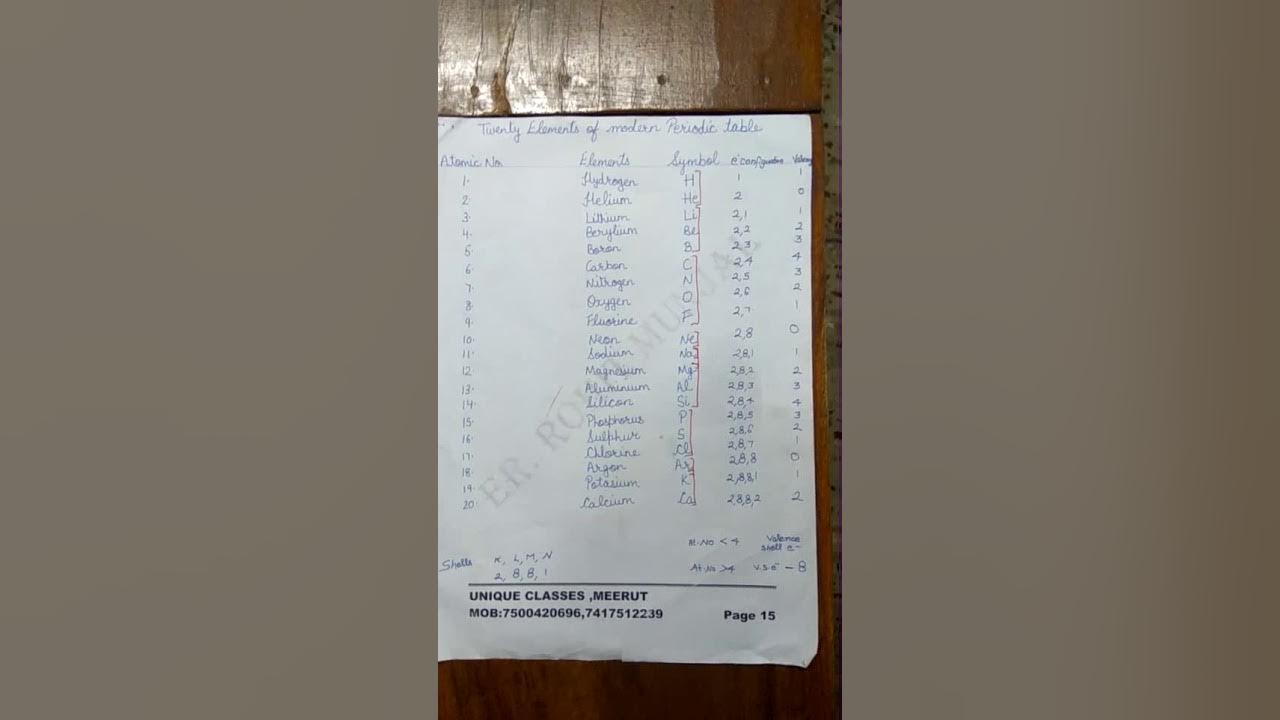 Twenty Elements of modern Periodic table
Atomic No. Elements Symbol e⁻configuration Valency
1. Hydrogen H 1 1
2. Helium He 2 0
3. Lithium Li 2,1 1
4. Berylium Be 2,2 2
5. Boron B 2,3 3
6. Carbon C 2,4 4
7. Nitrogen N 2,5 3
8. Oxygen O 2,6 2
9. Fluorine F 2,7 1
10. Neon Ne 2,8 0
11. Sodium Na 2,8,1 1
12. Magnesium Mg 2,8,2 2
13. Aluminium Al 2,8,3 3
14. Silicon Si 2,8,4 4
15. Phosphorus P 2,8,5 3
16. Sulphur S 2,8,6 2
17. Chlorine Cl 2,8,7 1
18. Argon Ar 2,8,8 0
19. Potasium K 2,8,8,1 1
20. Calcium Ca 2,8,8,2 2
At.No < 4 Valence shell e-
Shells K, L, M, N
2, 8, 8, 1
At.No >4 V.S.e⁻ - 8
ER. MUNJAL
UNIQUE CLASSES ,MEERUT
MOB:7500420696,7417512239 Page 15